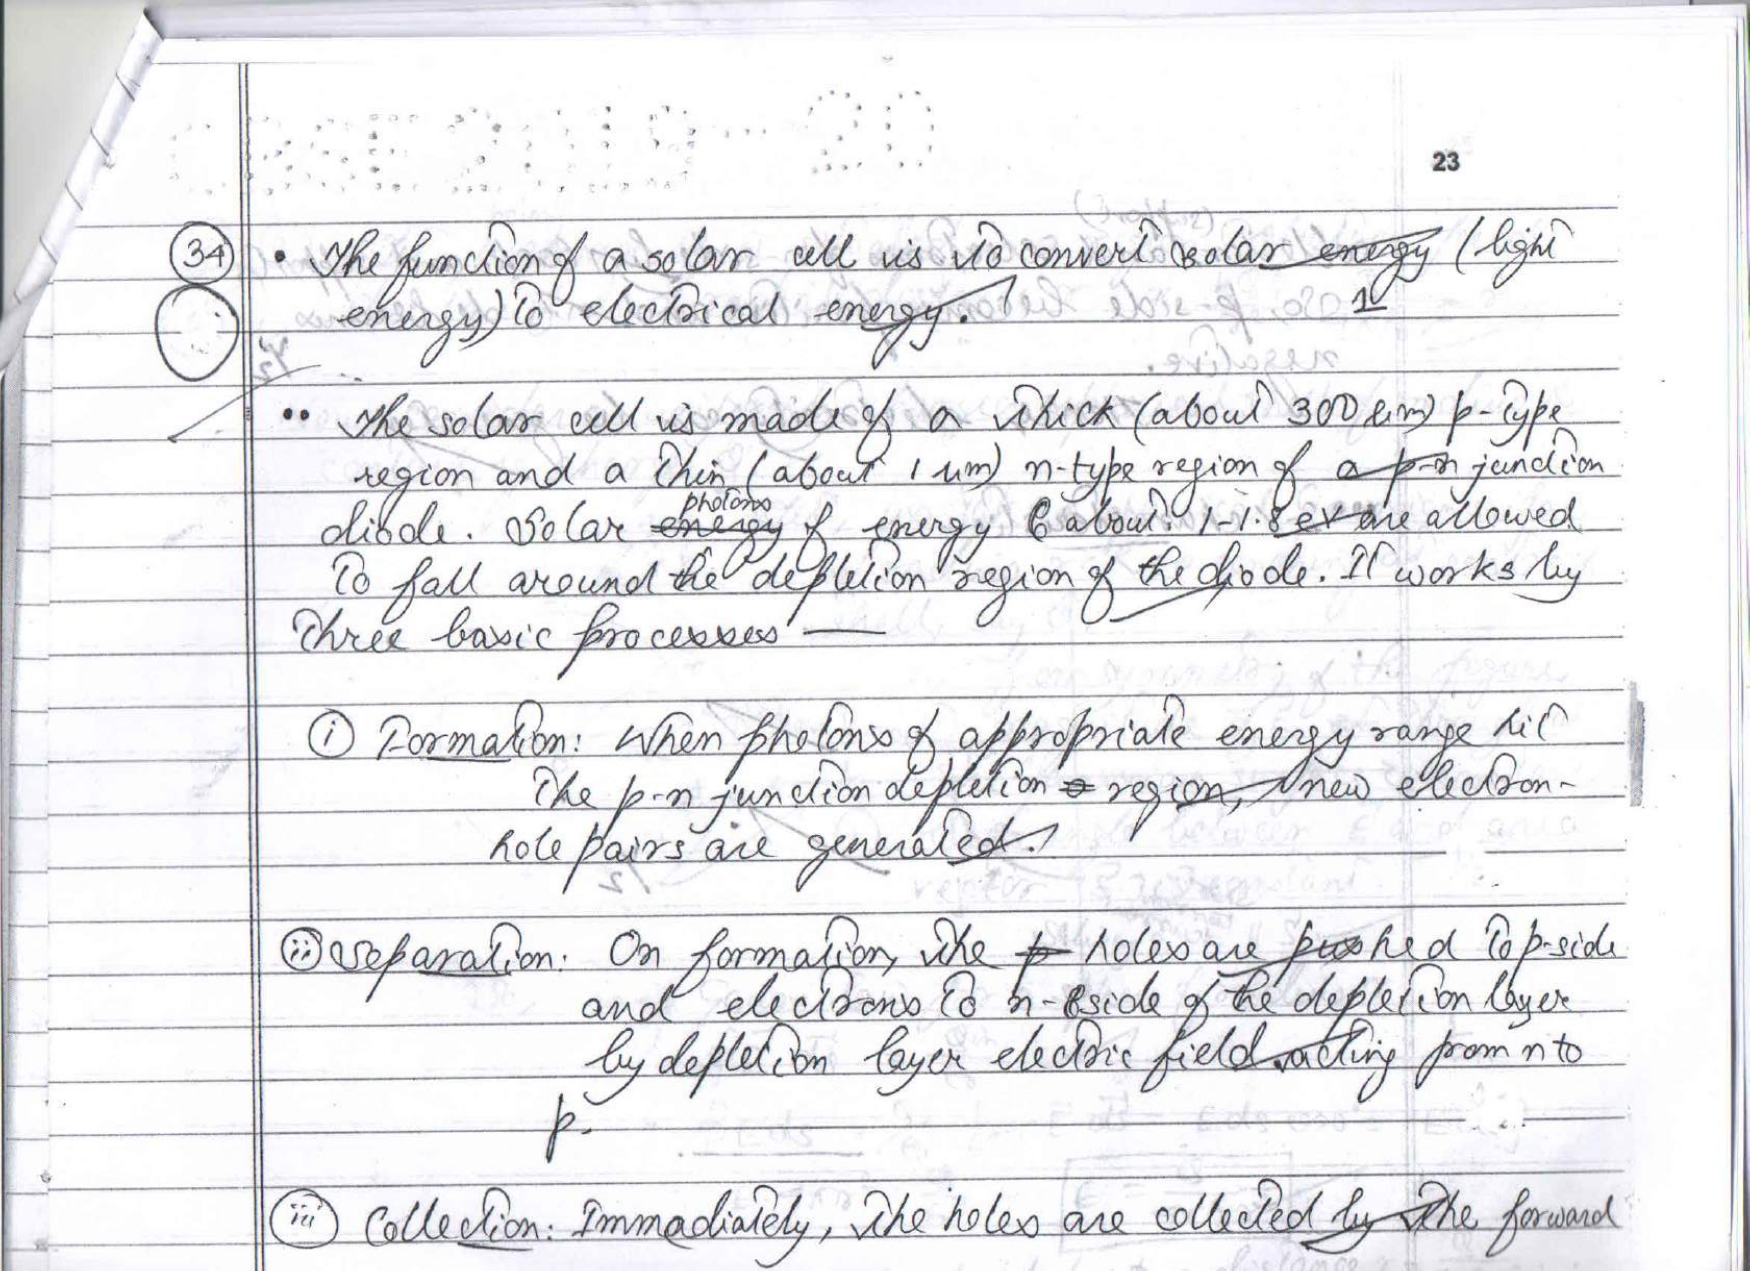 CBSE 2019-20
23
34 • The function of a solar cell is to convert solar energy (light
energy) to electrical energy.
1
•• The solar cell is made of a thick (about 300 µm) p-type
region and a thin (about 1 µm) n-type region of a p-n junction
diode. Solar energy photons of energy about 1-1.8 eV are allowed
to fall around the depletion region of the diode. It works by
three basic processes —
(i) Formation: When photons of appropriate energy range hit
the p-n junction depletion region, new electron-
hole pairs are generated.
(ii) Separation: On formation, the p holes are pushed to p-side
and electrons to n-side of the depletion layer
by depletion layer electric field acting from n to
p.
(iii) Collection: Immadiately, the holes are collected by the forward